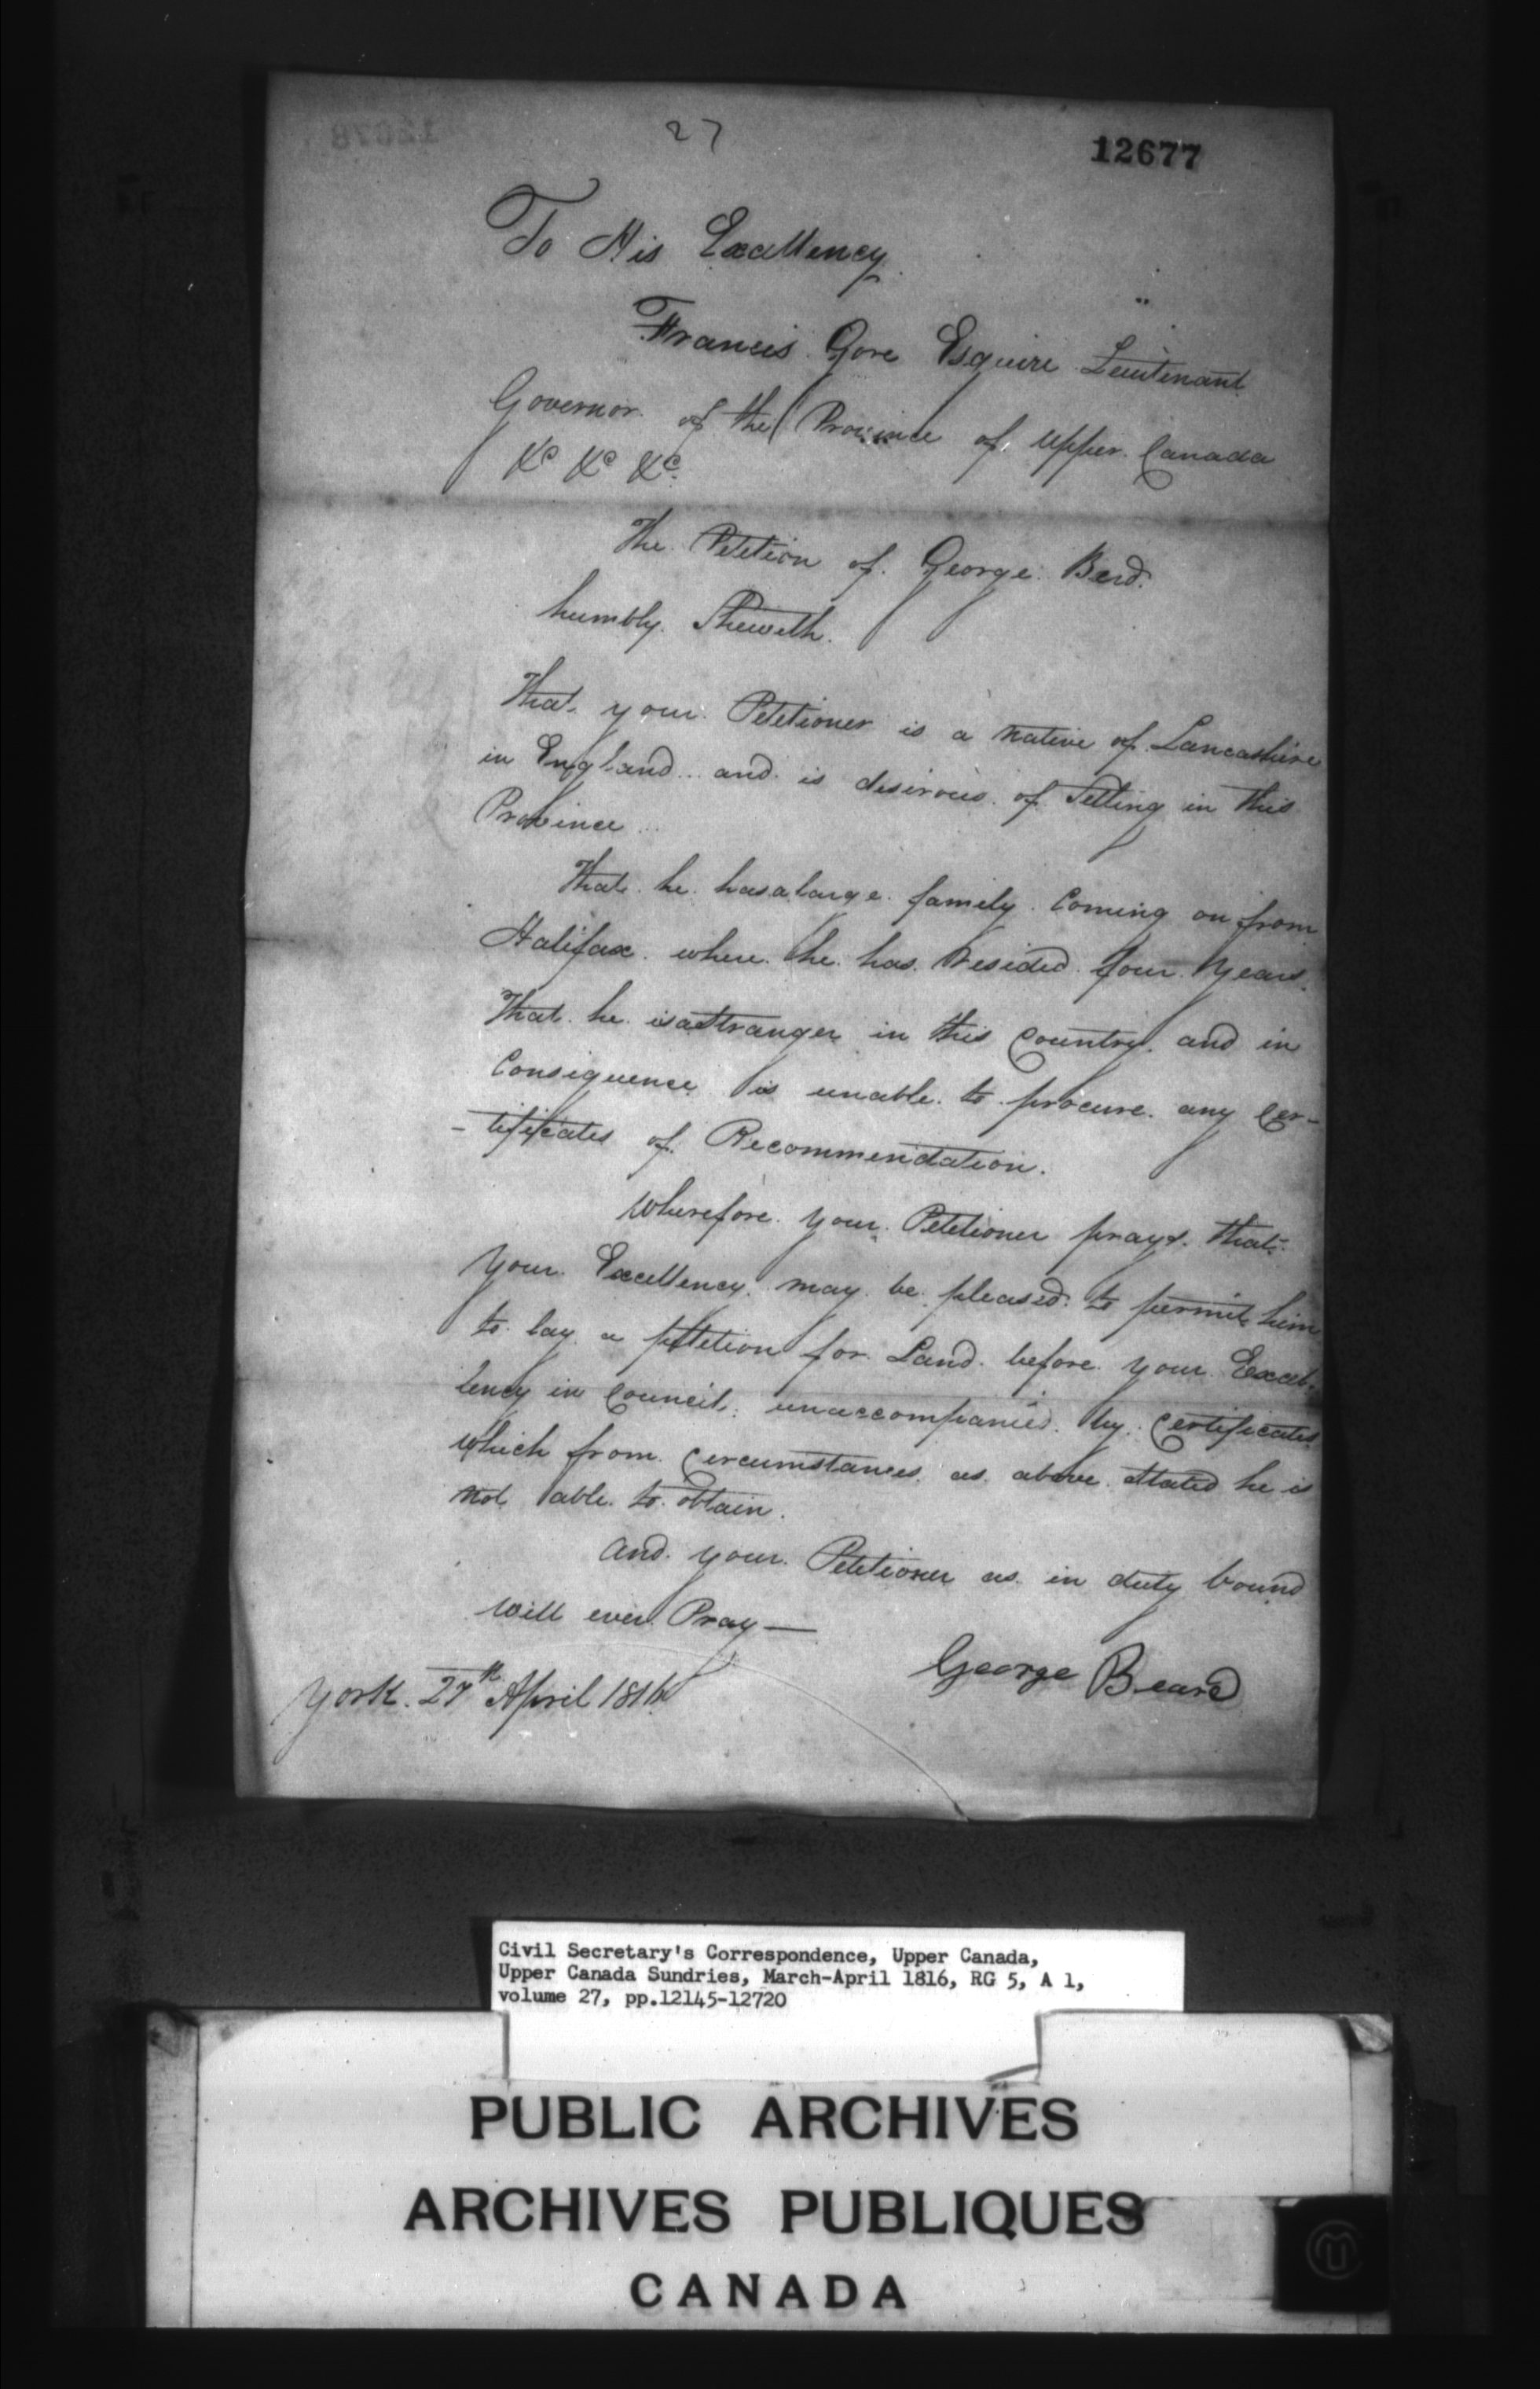 27
12677
To His Excellency
Francis Gore Esquire Lieutenant
Governor of the Province of Upper Canada
&c &c &c.
The Petition of George Berd.
humbly Sheweth.
That your Petitioner is a native of Lancashire
in England and is desirous of Setling in this
Province
That he has a large family Coming on from
Halifax where he has resided four Years.
That he is a Stranger in this Country and in
Consequence is unable to procure any Cer-
-tificates of Recommendation.
Wherefore your Petitioner prays that
Your Excellency may be pleased to permit him
to lay a petition for Land before your Excel-
lency in Council unaccompanied by Certificates
which from Circumstances as above Stated he is
not able to obtain.
And your Petitioner as in duty bound
will ever Pray —
George Beard
York 27th April 1816
Civil Secretary's Correspondence, Upper Canada,
Upper Canada Sundries, March-April 1816, RG 5, A 1,
volume 27, pp.12145-12720
PUBLIC ARCHIVES
ARCHIVES PUBLIQUES
CANADA